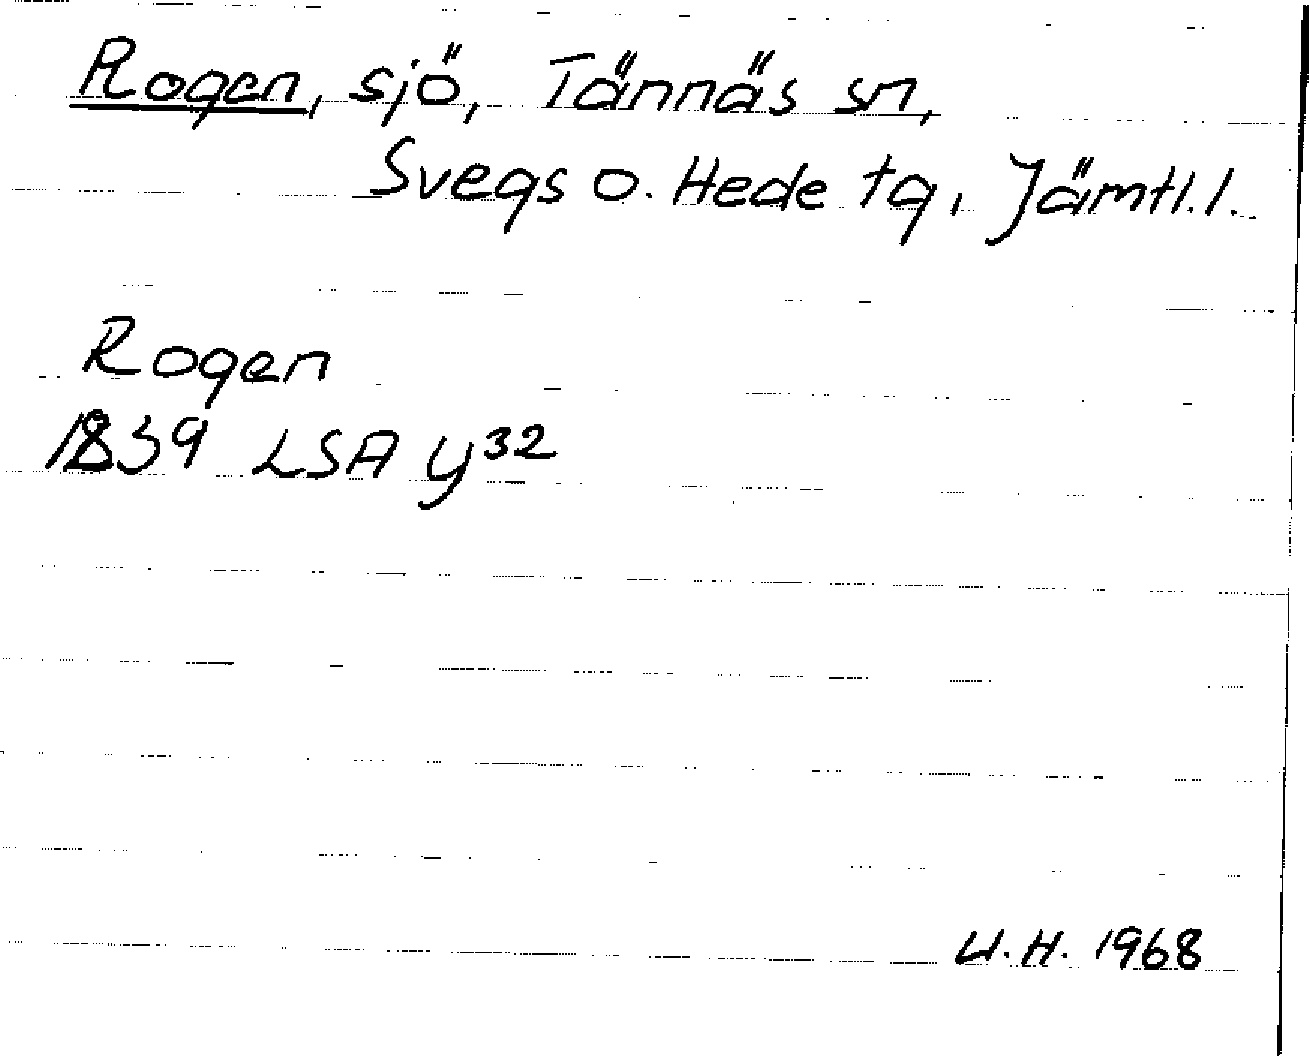 Rogen, sjö, Tännäs sn,
Svegs o. Hede tg, Jämtl.l.
Rogen
1839 LSA y32
U.H. 1968